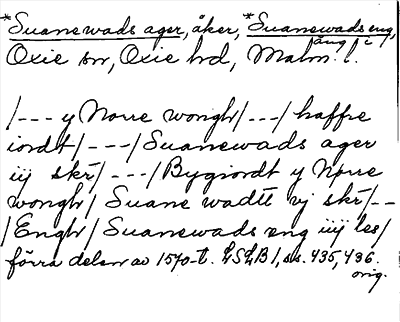 *Suanewads ager, åker, *Suanewads eng,
äng, i
Oxie sn, Oxie hd, Malm. l.
/--- y Norre wongh/---/ haffre
iordt/---/Suanewads ager
iij skr/---/Bygiordt y Nørre
wongh/Suane wadtt vj skr/--
/Engh/Suanewads eng iiij les/
förra delen av 1570-t. LSLB I, ss. 435, 436.
orig.